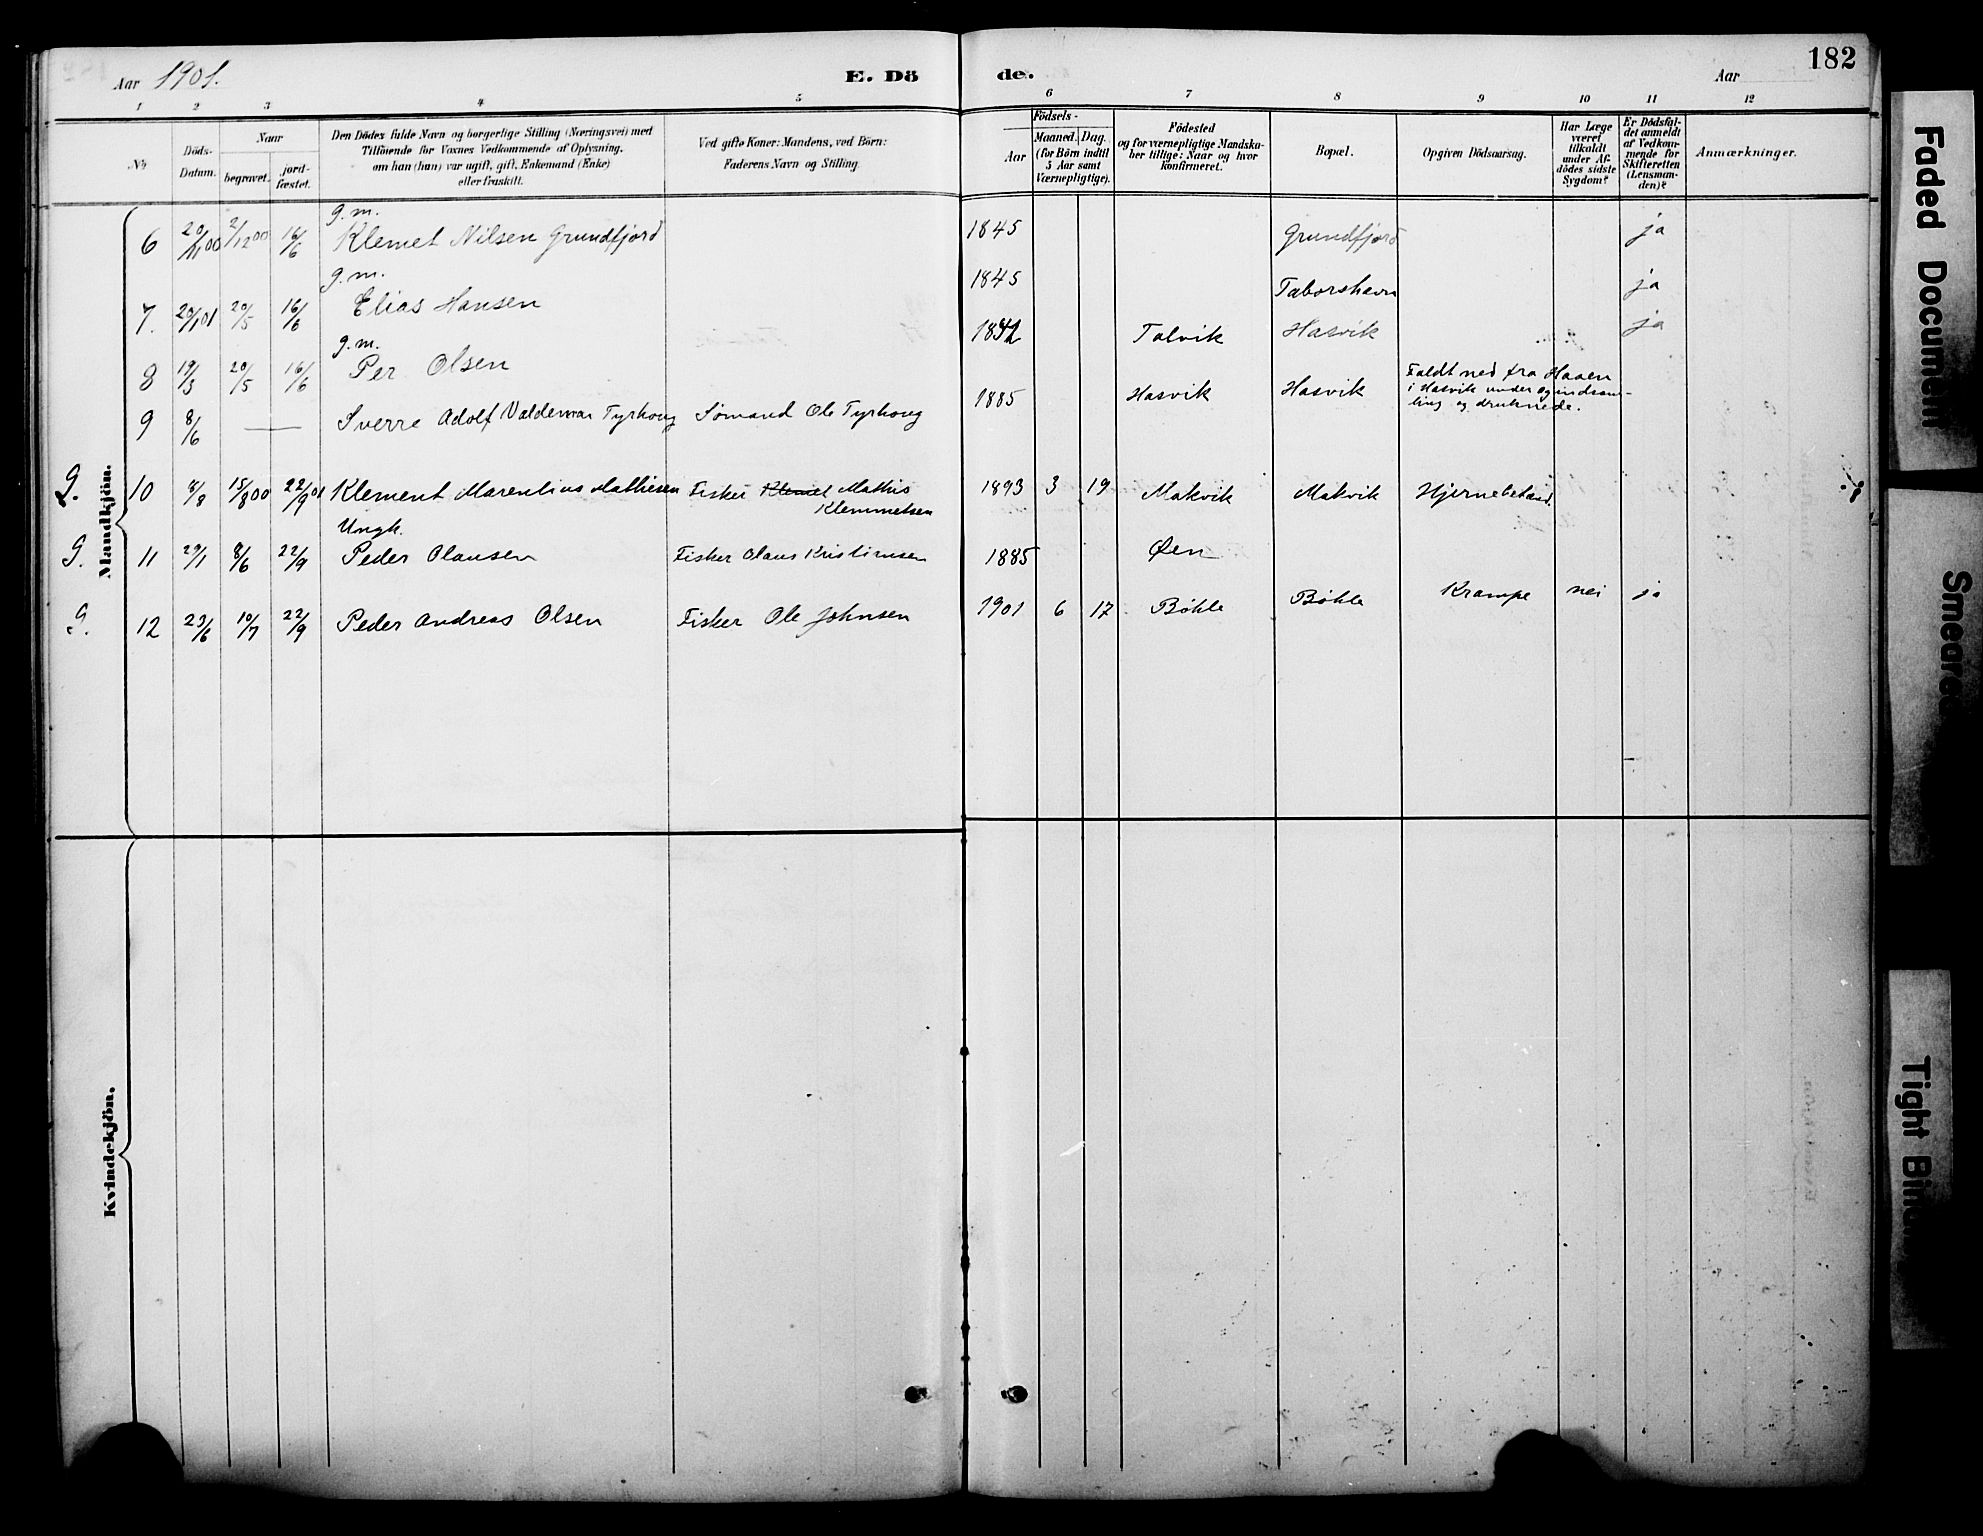 Aar 1901. E. Dö de. Aar 182
1 2 3 4 5 6 7 8 9 10 11 12
No
Döds-Datum.
Naar
begravet.
jord-fæstet.
Den Dödes fulde Navn og borgerlige Stilling (Næringsvei) med
Tilföiende for Voxnes Vedkommende af Oplysning,
om han (hun) var ugift, gift, Enkemand (Enke)
eller fraskilt.
Ved gifte Koner: Mandens, ved Börn:
Faderens Navn og Stilling.
Födsels-
Aar
Maaned. Dag.
(for Börn indtil
5 Aar samt
Værnepligtige).
Födested
og for værnepligtige Mandska-
ber tillige: Naar og hvor
konfirmeret.
Bopæl.
Opgiven Dödsaarsag.
Har Læge
været
tilkaldt
under Af-
dödes sidste
Sygdom?
Er Dödsfal-
det anmeldt
af Vedkom-
mende for
Skifteretten
(Lensman-
den)?
Anmærkninger.
Mandkjön.
g.m.
6 20/11 00 2/12 00 16/6 Klemet Nilsen Grundfjord 1845 Grundfjord ja
g.m.
7. 20/1 01 20/5 16/6 Elias Hansen 1845 Taborshavn ja
g.m.
8 19/3 20/5 16/6 Per Olsen 1842 Talvik Hasvik ja
9 8/6 — Sverre Adolf Valdemar Tyrhoug Sømand Ole Tyrhoug 1885 Hasvik Hasvik Faldt ned fra Haaen
i Hasvik under
og druknede.
10 8/8 15/8 00 22/9 01 Klement Marentius Mathisen Fisker Klemet Mathis
Klemmetsen 1893 3 19 Makvik Makvik
Ungk.
G. 11 29/1 8/6 22/9 Peder Olausen Fisker Olaus Kristiansen 1885 Øen
G. 12 23/6 10/7 22/9 Peder Andreas Olsen Fisker Ole Johnsen 1901 6 17 Bøhle Bøhle Krampe nei ja
Kvindekjön.
Faded Document
Smeared
Tight Bin